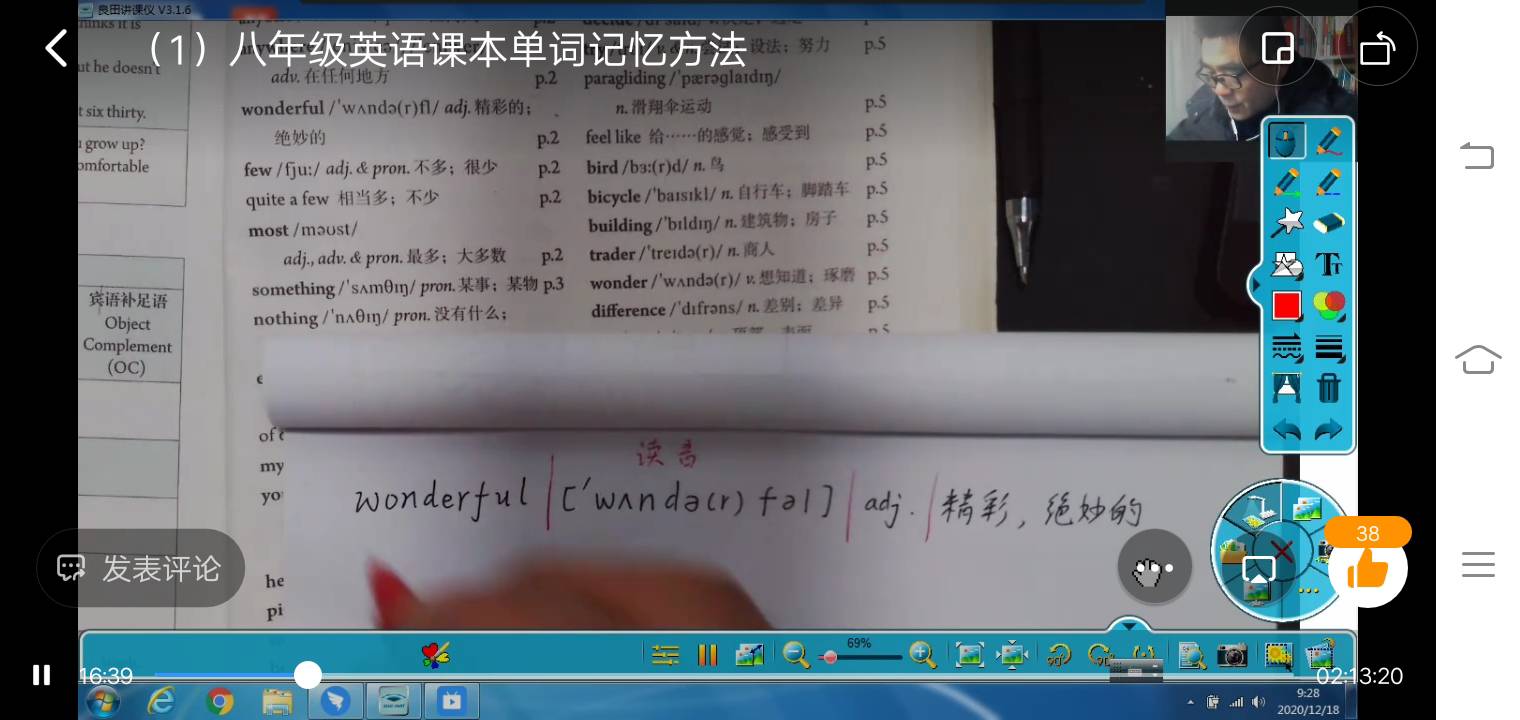 良田讲课仪 V3.1.6
（1）八年级英语课本单词记忆方法
ut he doesn't
t six thirty.
grow up?
omfortable
宾语补足语
Object
Complement
(OC)
adv. 在任何地方 p.2
wonderful /ˈwʌndə(r)fl/ adj. 精彩的；
绝妙的 p.2
few /fjuː/ adj. & pron. 不多；很少 p.2
quite a few 相当多；不少 p.2
most /məʊst/
adj., adv. & pron. 最多；大多数 p.2
something /ˈsʌmθɪŋ/ pron. 某事；某物 p.3
nothing /ˈnʌθɪŋ/ pron. 没有什么；
of
my
yo
he
pi
设法；努力 p.5
paragliding /ˈpærəɡlaɪdɪŋ/
n. 滑翔伞运动 p.5
feel like 给……的感觉；感受到 p.5
bird /bɜː(r)d/ n. 鸟 p.5
bicycle /ˈbaɪsɪkl/ n. 自行车；脚踏车 p.5
building /ˈbɪldɪŋ/ n. 建筑物；房子 p.5
trader /ˈtreɪdə(r)/ n. 商人 p.5
wonder /ˈwʌndə(r)/ v. 想知道；琢磨 p.5
difference /ˈdɪfrəns/ n. 差别；差异 p.5
读音
wonderful | [ˈwʌndə(r)fəl] | adj. | 精彩，绝妙的
发表评论
38
69%
16:39
02:13:20
9:28
2020/12/18